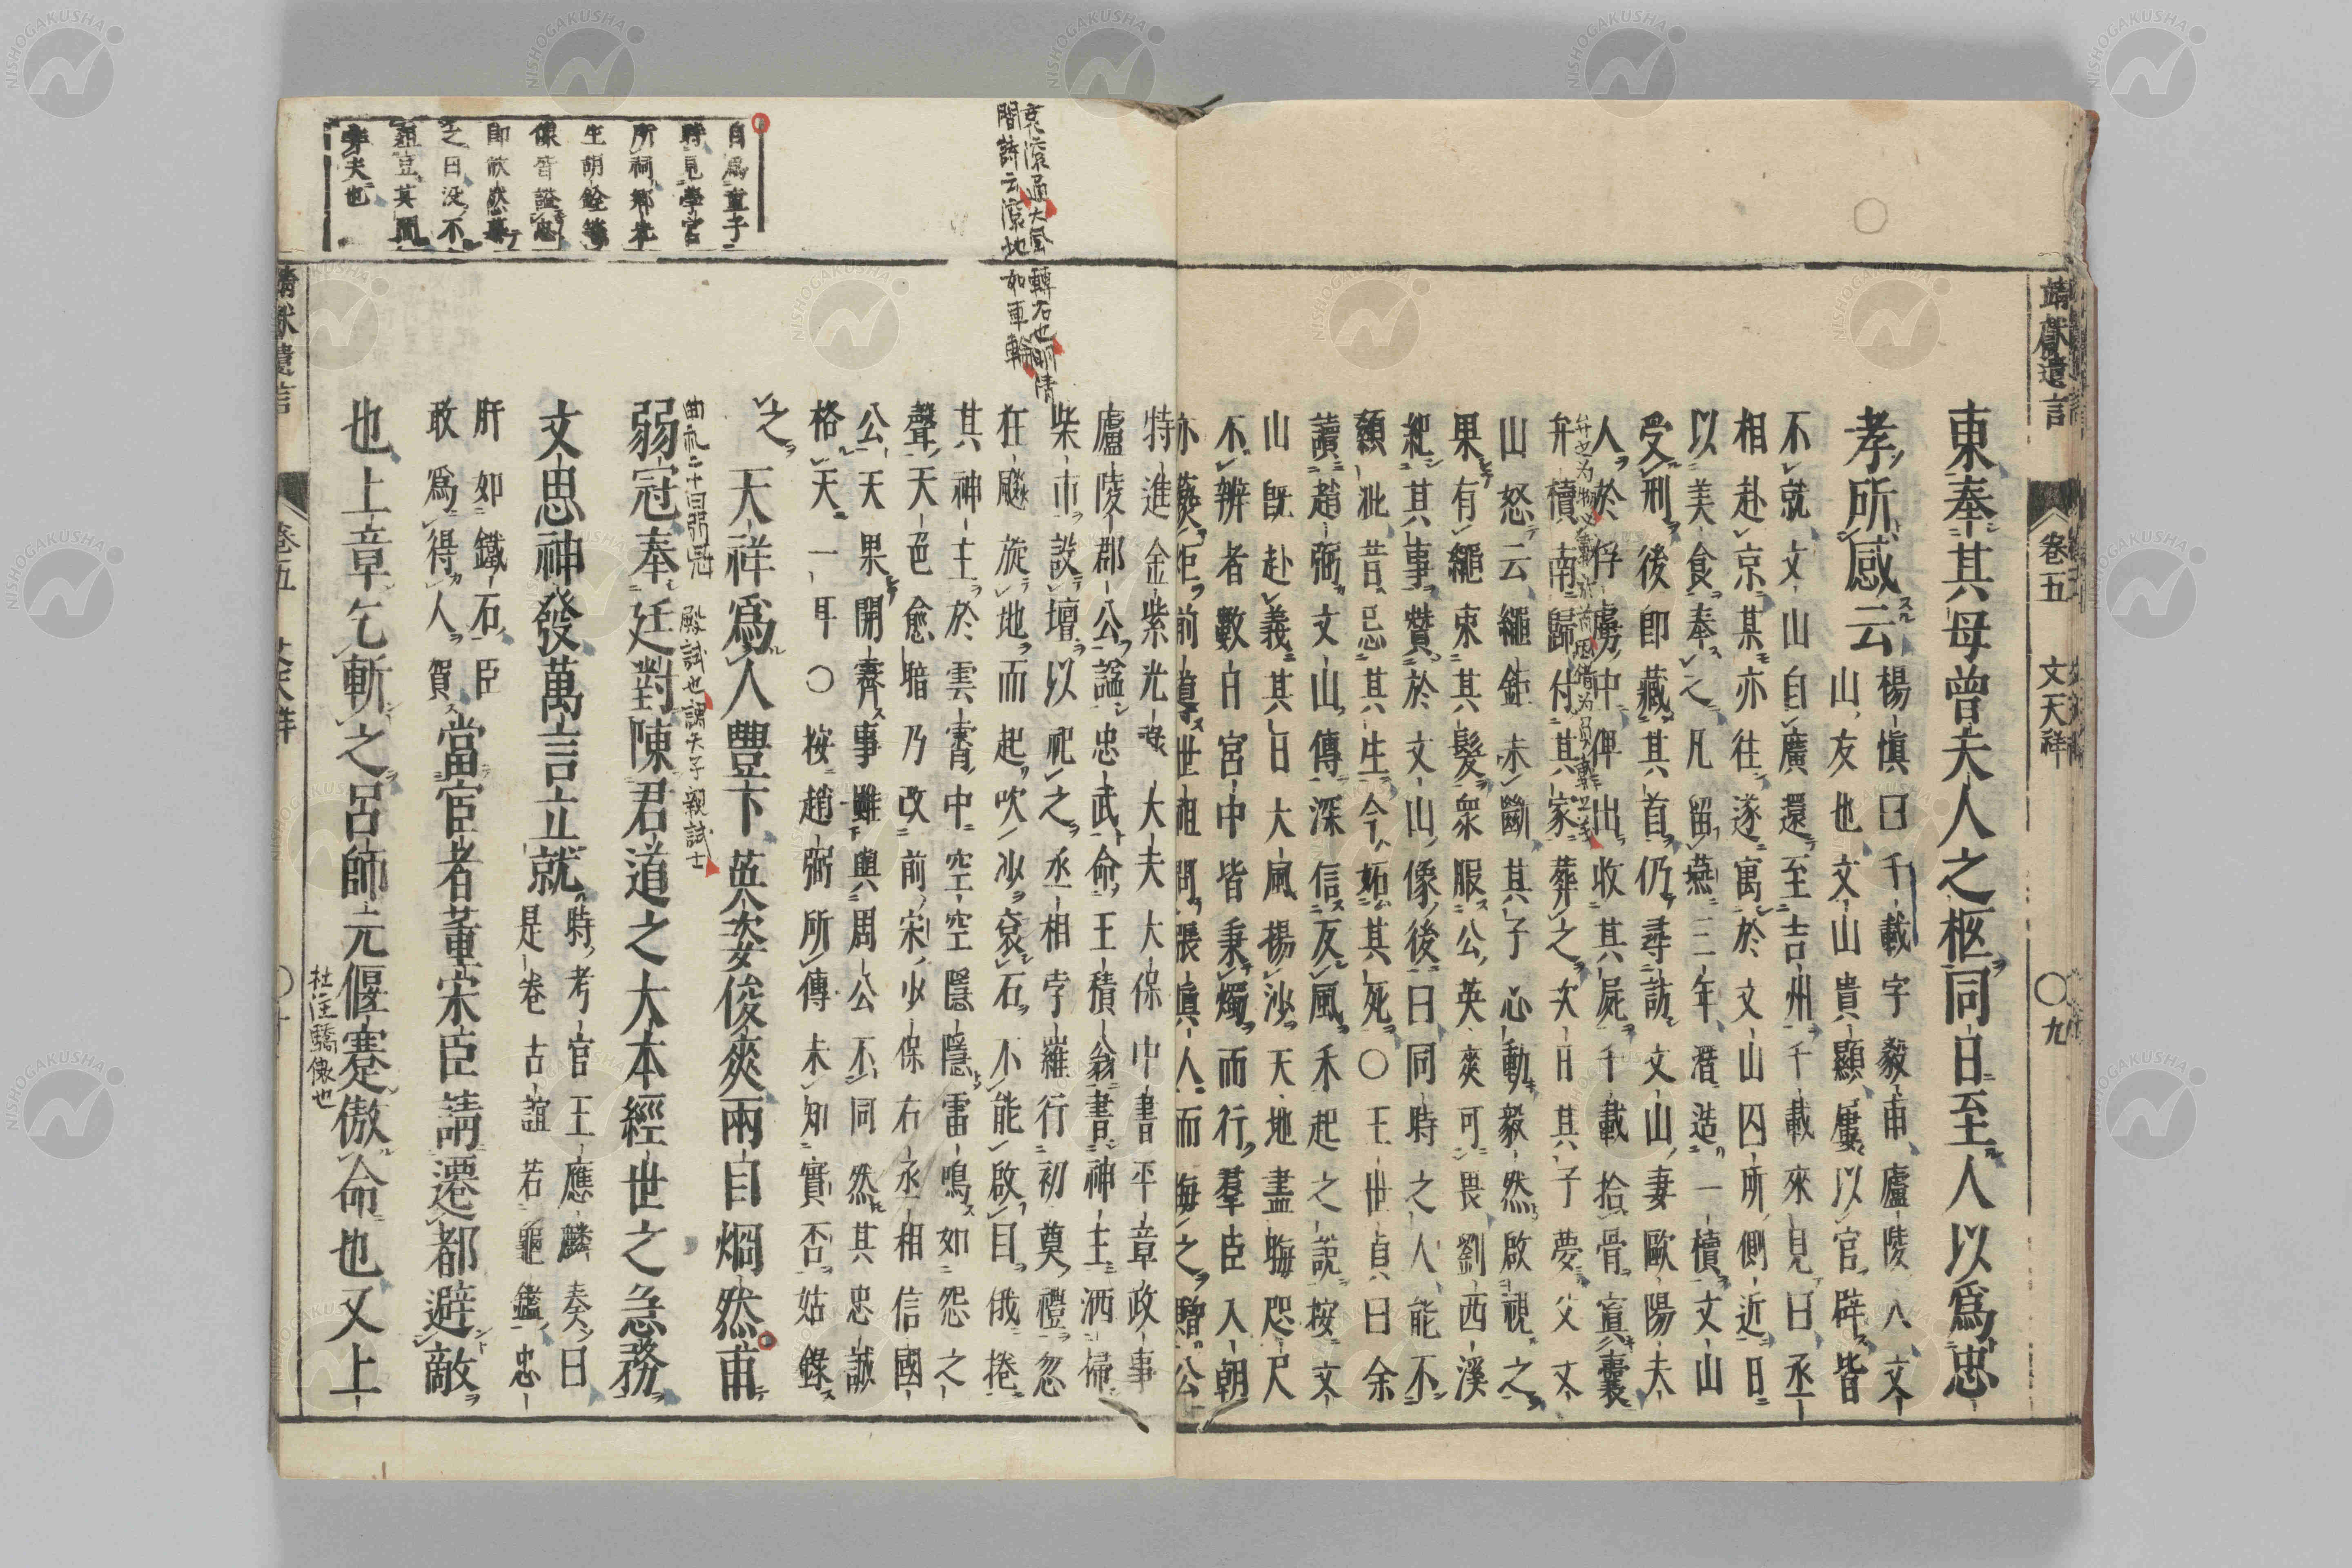 靖獻遺言
卷五
文天祥
〇九
東奉其母曾夫人之柩同日至人以爲忠
孝所感云
楊愼曰千載字毅甫廬陵人文
山友也文山貴顯屢以官辟皆
不就文山自廣還至吉州千載來見曰丞
相赴京某亦往遂寓於文山囚所側近日
以美食奉之凡留燕三年潛造一櫝文山
受刑後卽藏其首仍尋訪文山妻歐陽夫
人於俘虜中俾出收其屍千載拾骨寘囊
弁櫝南歸付其家葬之次日其子夢父文
山怒云繩鉅未斷其子心動毅然啟視之
果有繩束其髮衆服公英爽可畏劉西溪
紀其事贊於文山像後曰同時之人能不
顙泚昔忌其生今妬其死〇王世貞曰余
讀趙弼文山傳深信反風禾起之說按文
山旣赴義其日大風揚沙天地盡晦咫尺
不辨者數日宮中皆秉燭而行羣臣入朝
亦爇炬前導世祖問張眞人而悔之贈公
特進金紫光祿大夫大保中書平章政事
廬陵郡公諡忠武命王積翁書神主洒掃
柴市設壇以祀之丞相孛羅行初奠禮忽
狂飈旋地而起吹沙衮石不能啟目俄捲
其神主於雲霄中空空隱隱雷鳴如怨之
聲天色愈暗乃改前宋少保右丞相信國
公天果開霽事雖與周公不同然其忠誠
格天一耳〇按趙弼所傳未知實否姑錄
之
天祥爲人豐下英姿俊爽兩目烱然甫
弱冠奉廷對陳君道之大本經世之急務
文思神發萬言立就
時考官王應麟奏曰
是卷古誼若龜鑑忠
肝如鐵石臣
敢爲得人賀
當宦者董宋臣請遷都避敵
也上章乞斬之呂師元偃蹇傲命也又上
自爲童子
時見學宮
所祠鄉先
生胡銓等
像皆諡忠
卽欣然慕
之曰没不
俎豆其間
非夫也
閣詩云滾地如車輪
曲礼二十曰弱冠
殿試也謂天子親試士
杜注驕傲也
靖獻遺言
卷五
文天祥